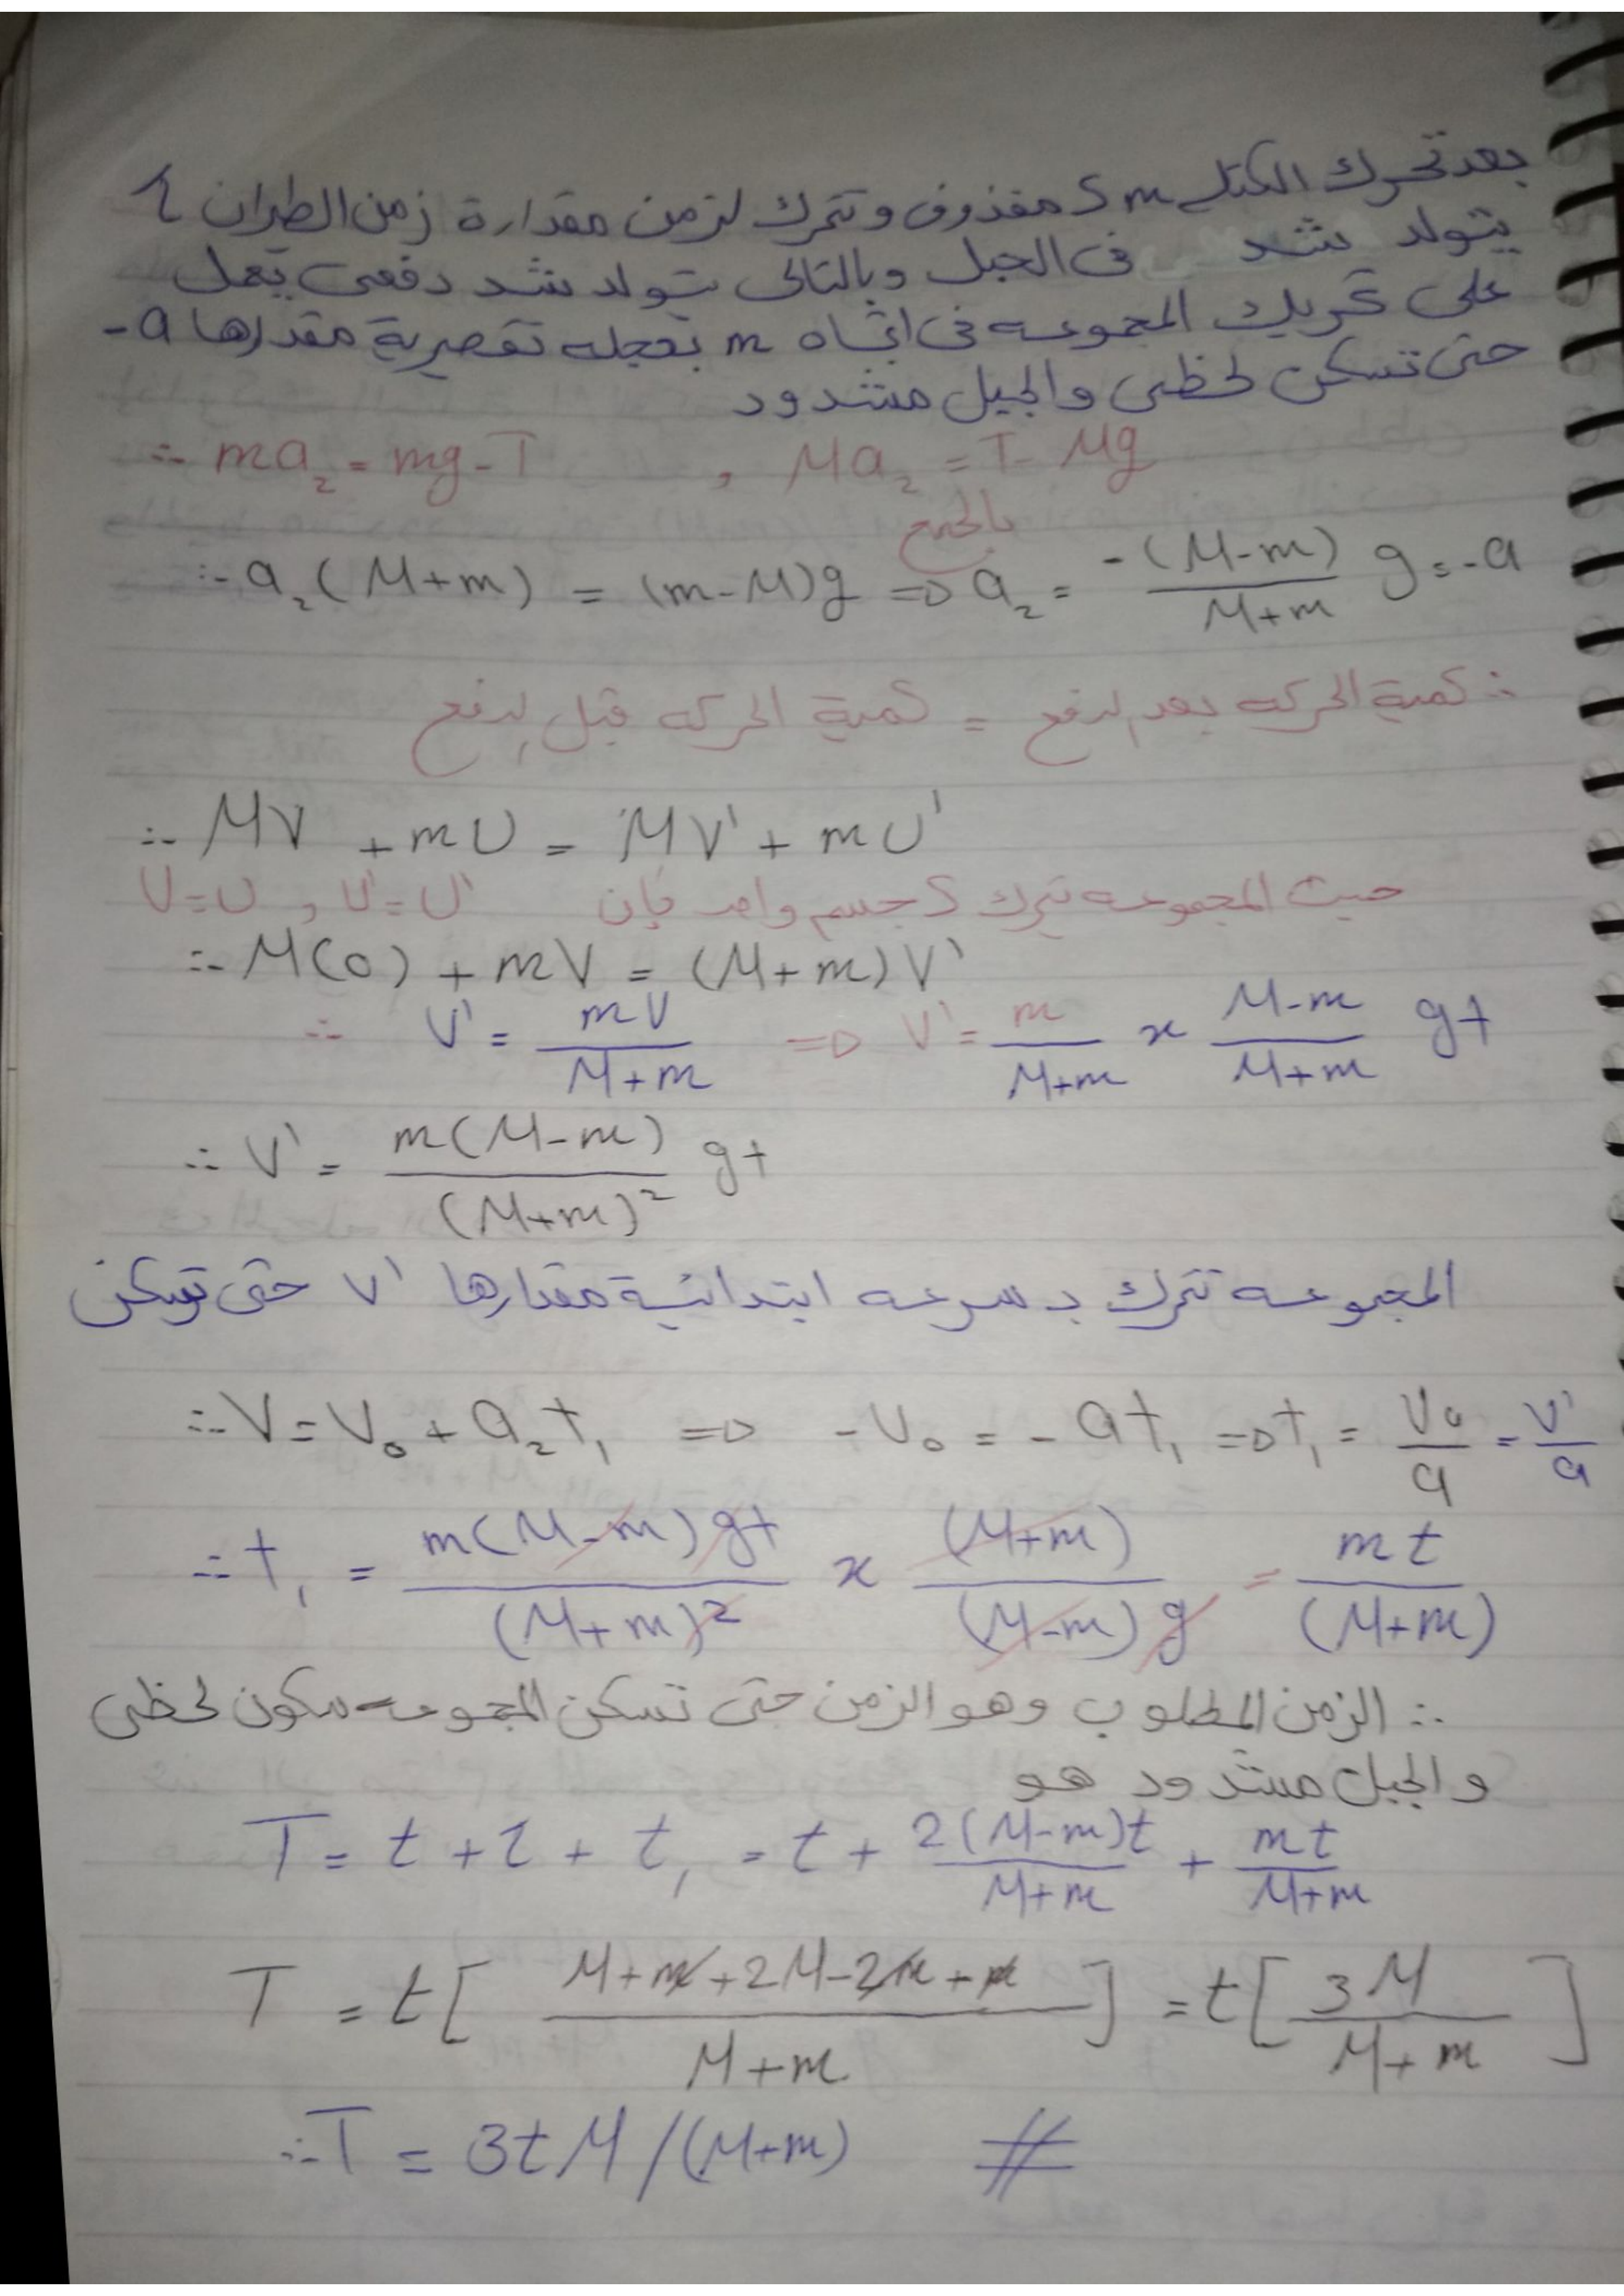 بعد تحرك الكتلة m كمقذوف وتتحرك لزمن مقدارة زمن الطيران τ
يتولد شد فى الحبل وبالتالى يتولد شد دفعى يعمل
على تحريك المجموعه فى اتجاه m بعجله تقصيرية مقدارها -a
حتى تسكن لحظى والحبل مشدود
∴ ma₂ = mg - T , Ma₂ = T - Mg
بالجمع
∴ a₂(M+m) = (m-M)g ⇒ a₂ = -(M-m)/(M+m) g = -a
∴ كمية الحركه بعد الدفع = كمية الحركه قبل الدفع
∴ MV + mU = MV' + mU'
حيث المجموعه تتحرك كجسم واحد فإن V=U , V'=U'
∴ M(0) + mV = (M+m)V'
∴ V' = mV/(M+m) ⇒ V' = m/(M+m) × (M-m)/(M+m) gt
∴ V' = m(M-m)/(M+m)² gt
المجموعه تتحرك بسرعه ابتدائية مقدارها V' حتى تسكن
∴ V = V₀ + a₂t₁ ⇒ -V₀ = -at₁ ⇒ t₁ = V₀/a = V'/a
∴ t₁ = m(M-m)gt/(M+m)² × (M+m)/(M-m)g = mt/(M+m)
∴ الزمن المطلوب وهو الزمن حتى تسكن المجموعه سكون لحظى
والحبل مشدود هو
T = t + τ + t₁ = t + 2(M-m)t/(M+m) + mt/(M+m)
T = t[(M+m+2M-2m+m)/(M+m)] = t[3M/(M+m)]
∴ T = 3tM/(M+m) #